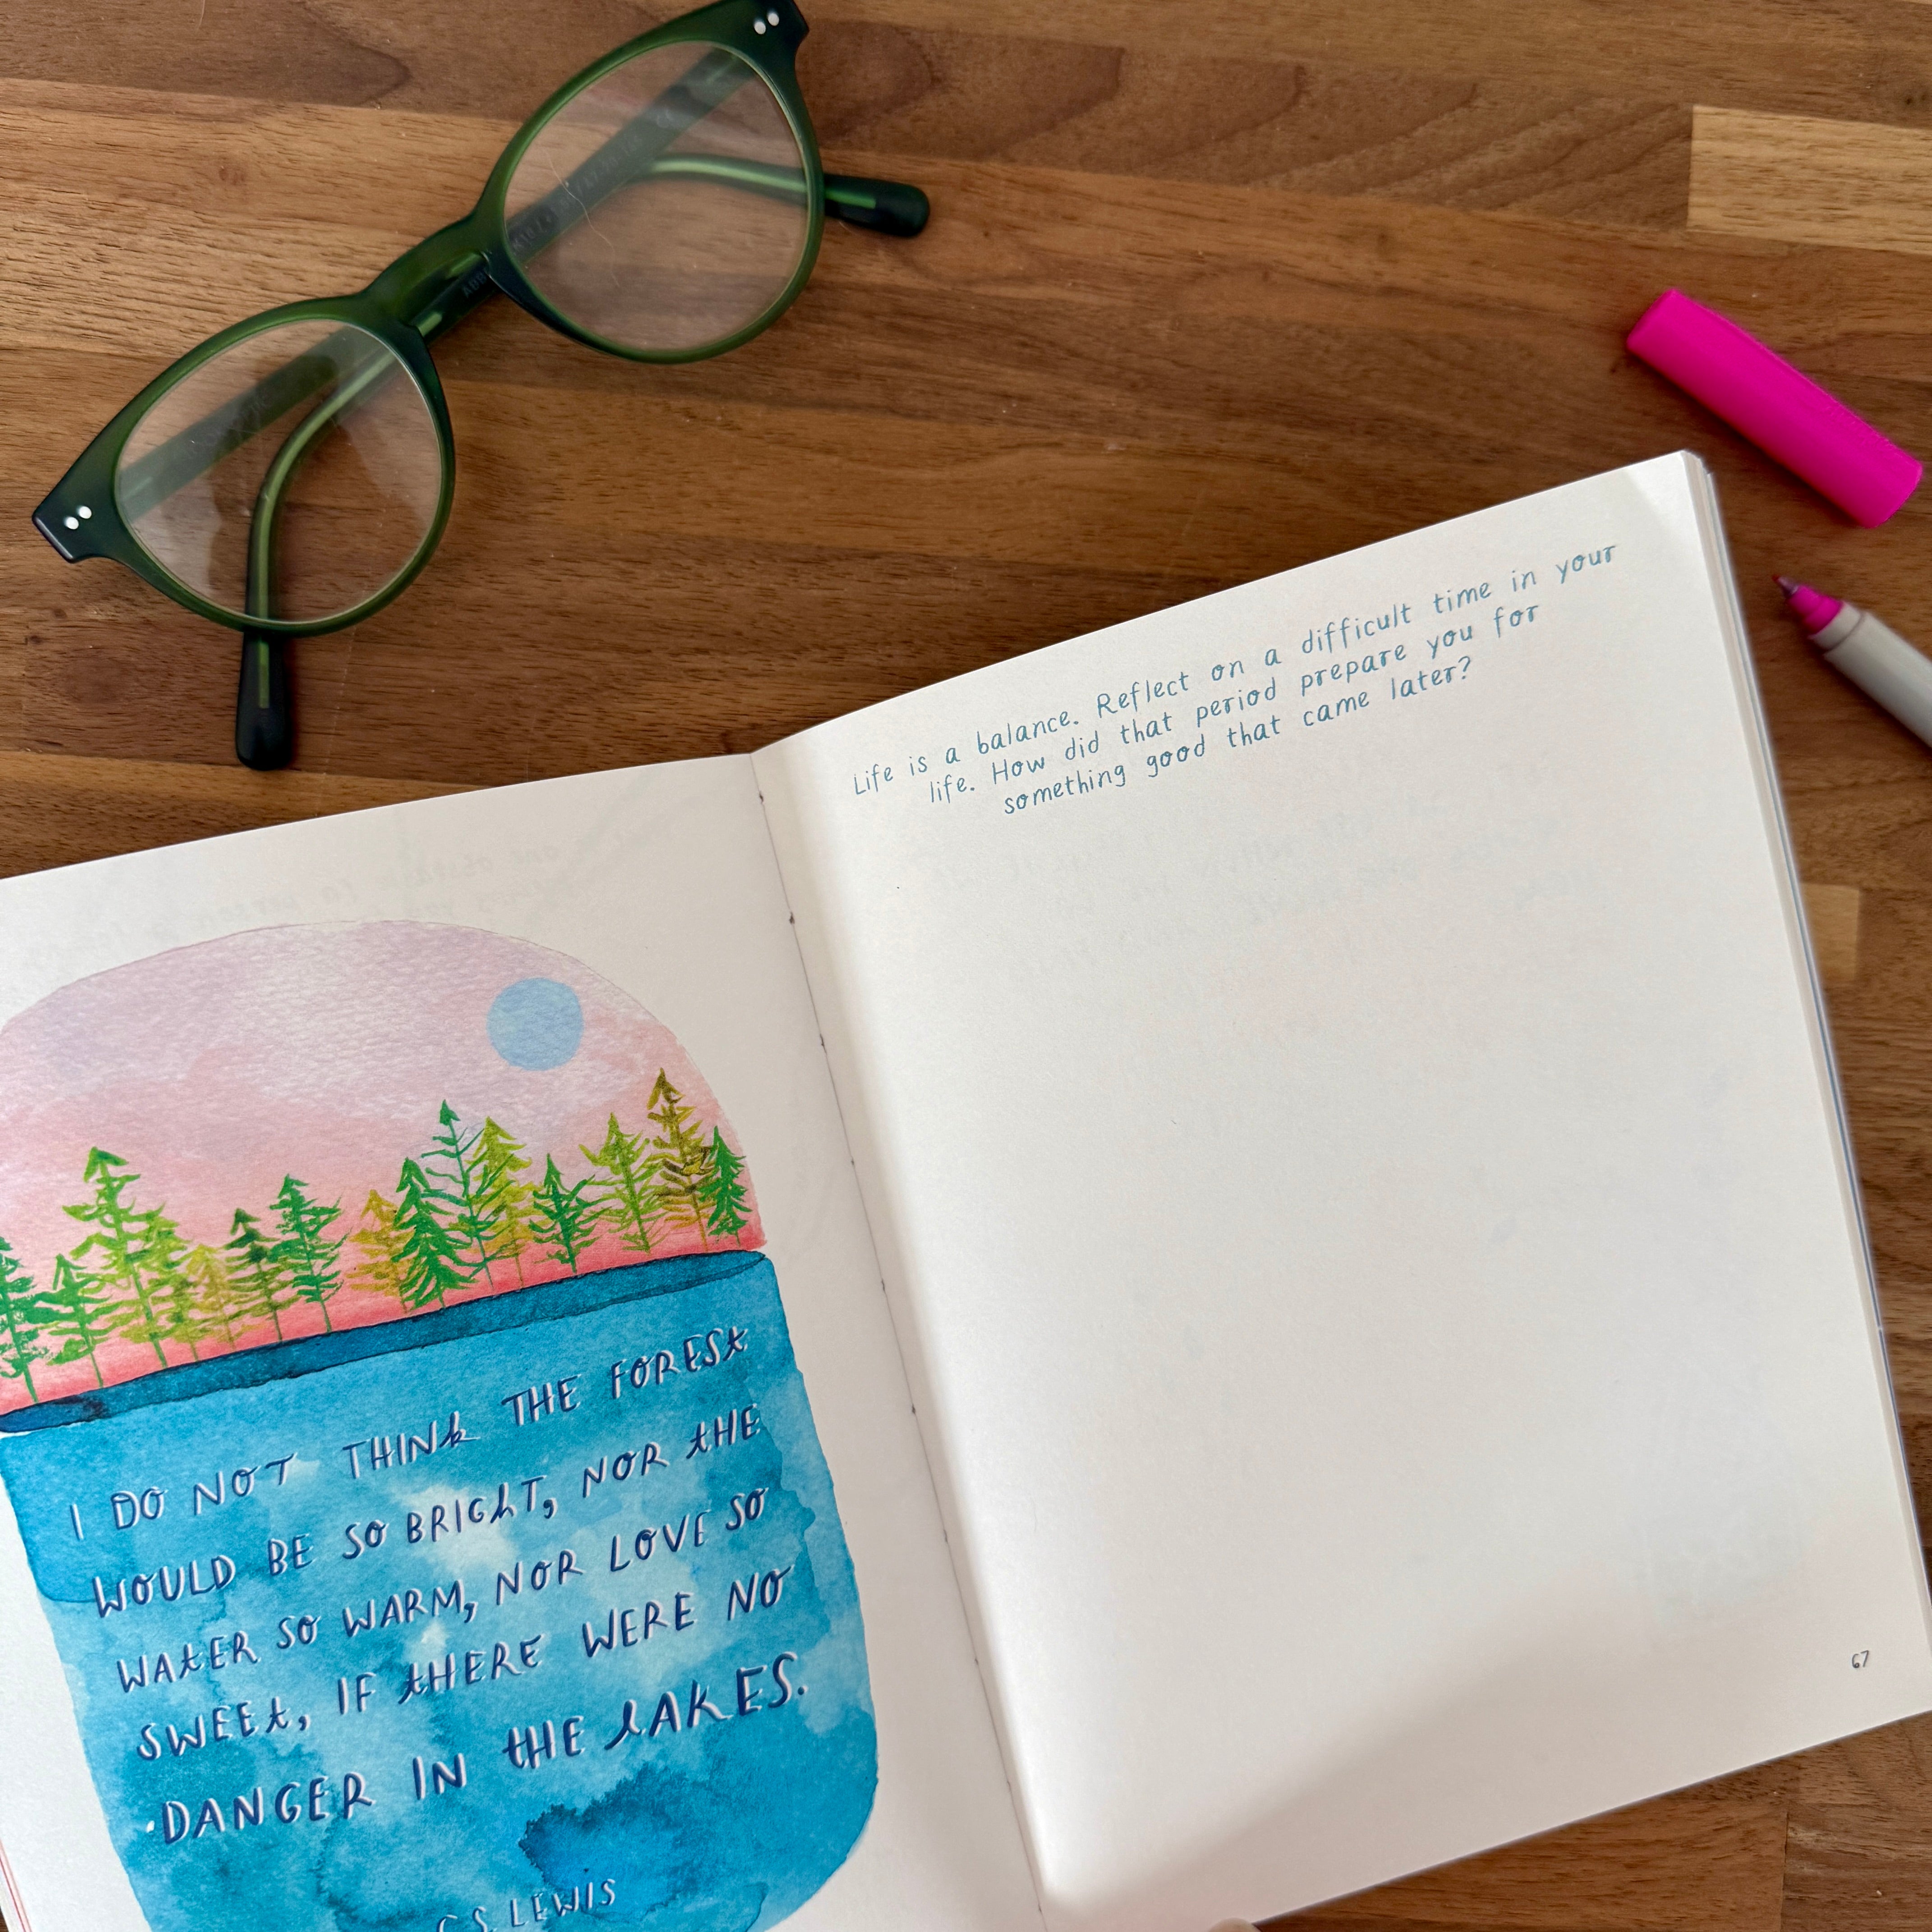 I DO NOT THINK THE FOREST
WOULD BE SO BRIGHT, NOR THE
WATER SO WARM, NOR LOVE SO
SWEET, IF THERE WERE NO
DANGER IN THE LAKES.
C.S. LEWIS
Life is a balance. Reflect on a difficult time in your
life. How did that period prepare you for
something good that came later?
67